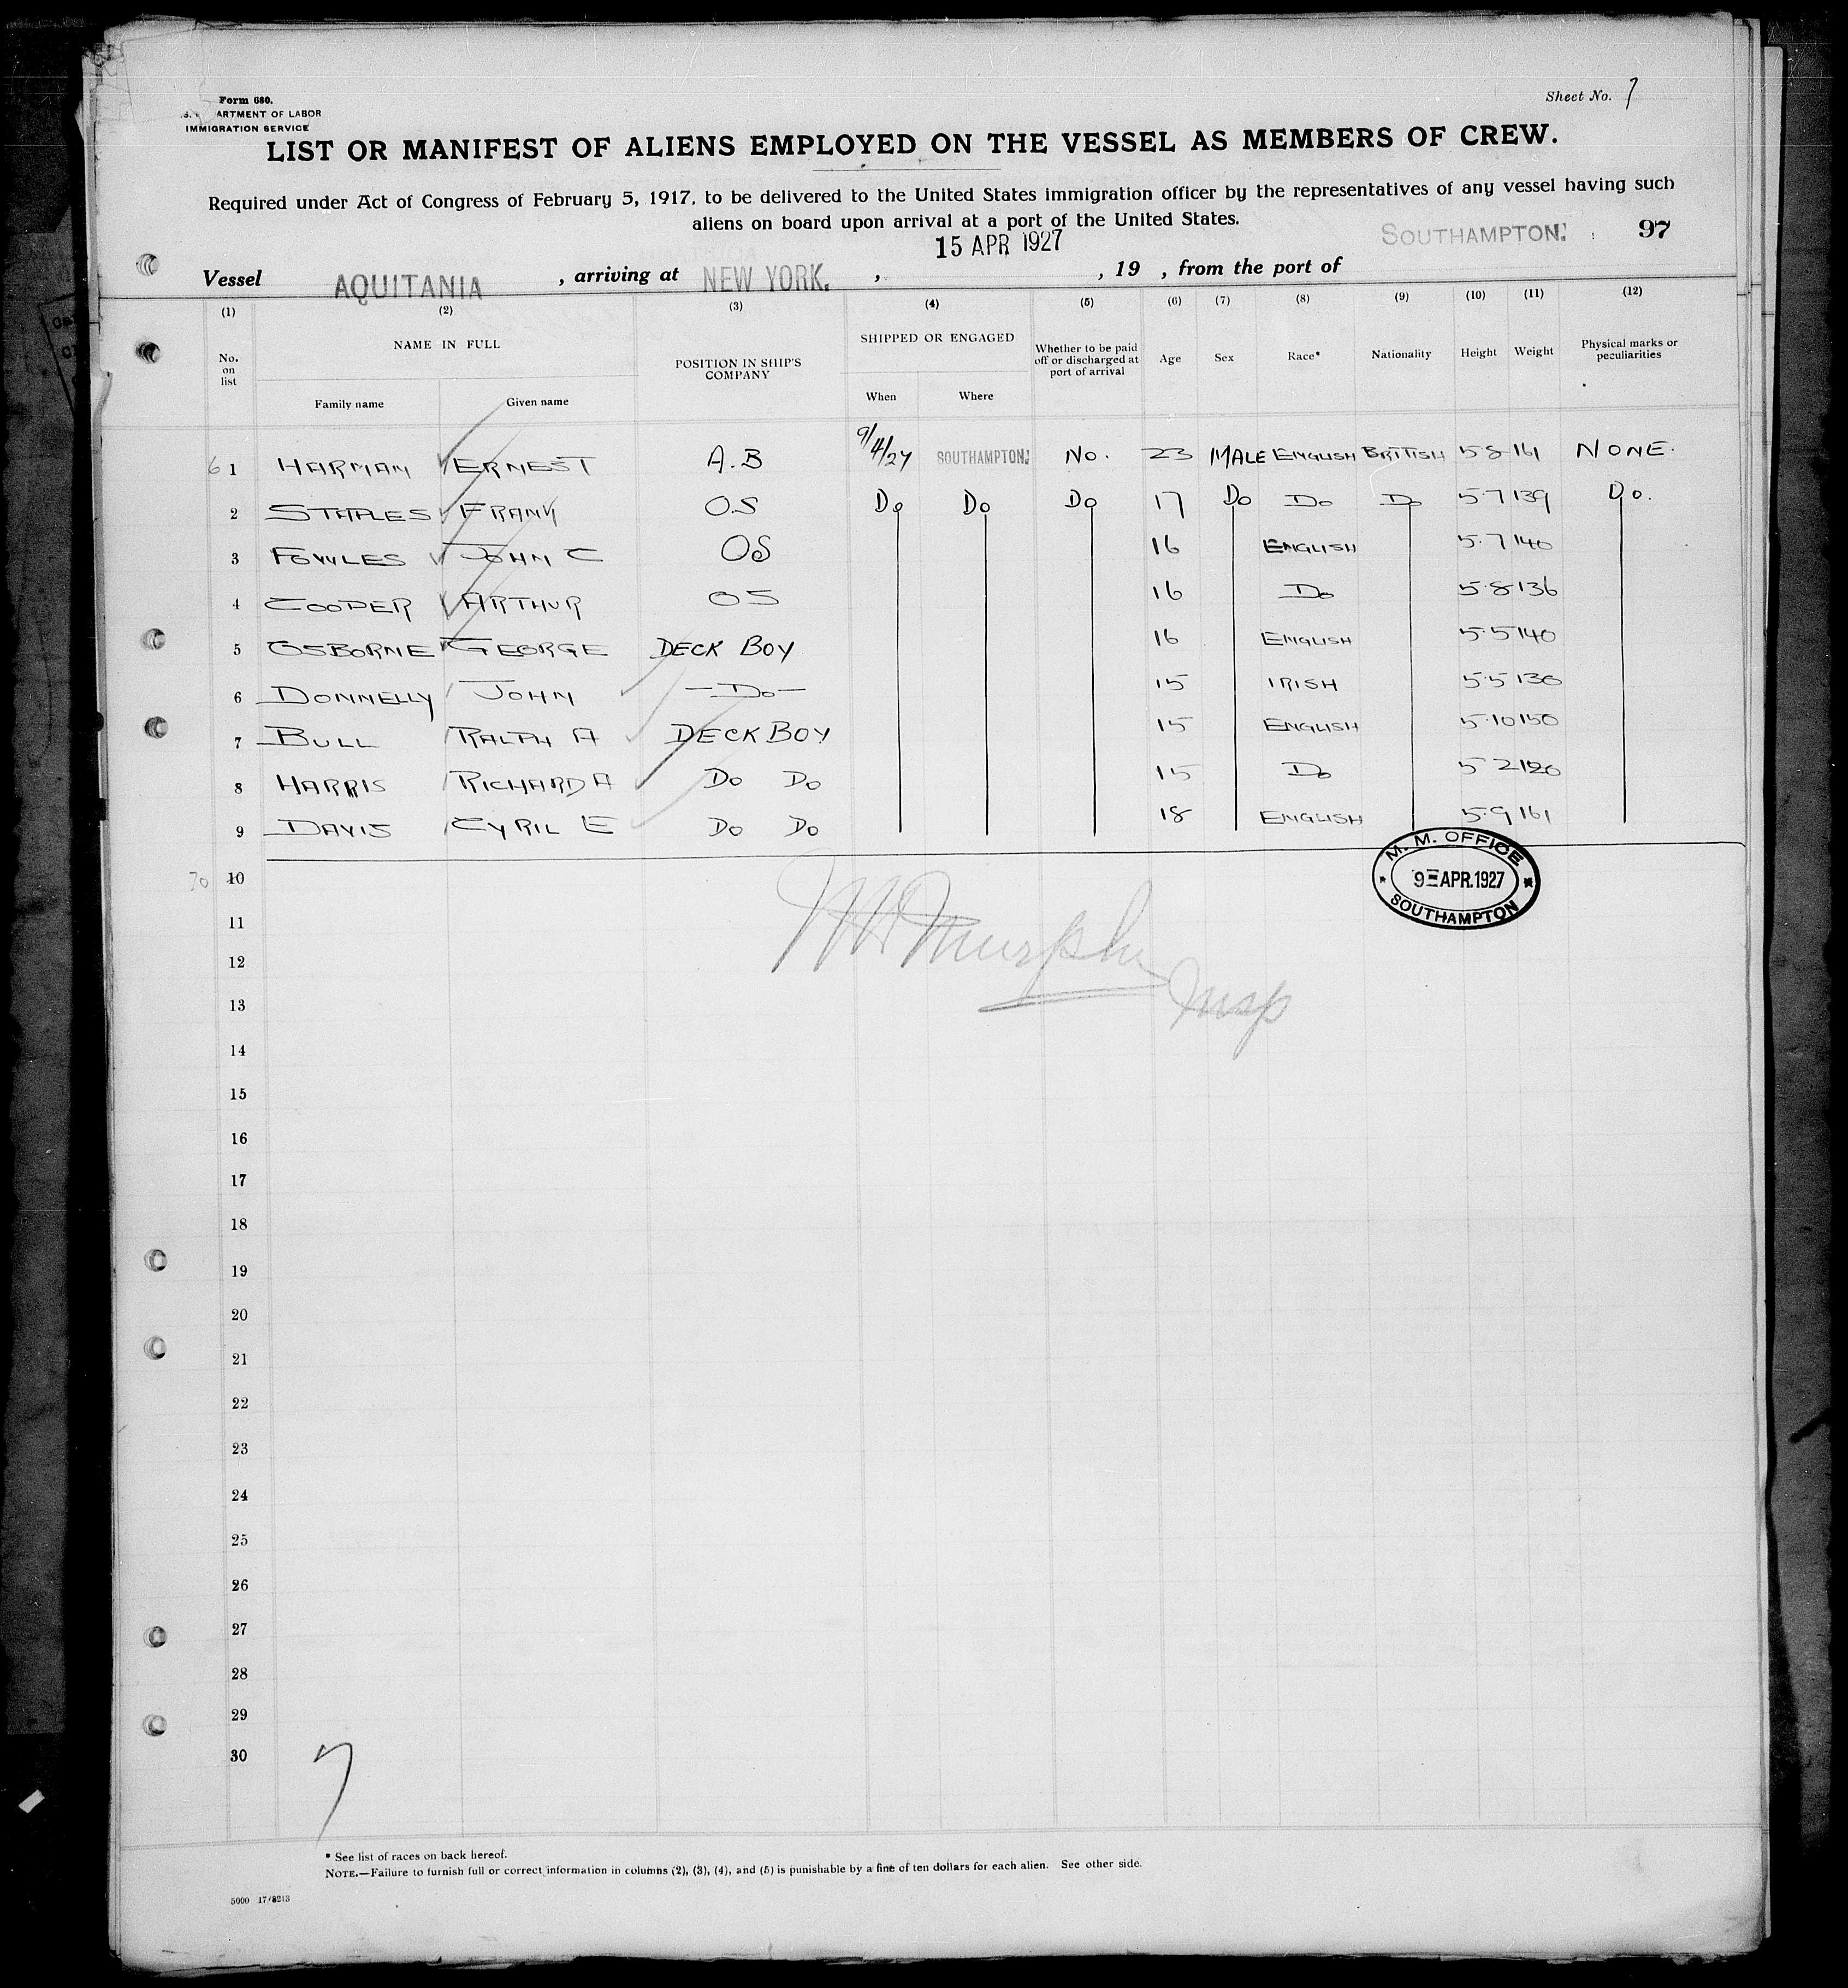 Form 680.
ARTMENT OF LABOR
IMMIGRATION SERVICE
Sheet No. 7
LIST OR MANIFEST OF ALIENS EMPLOYED ON THE VESSEL AS MEMBERS OF CREW.
Required under Act of Congress of February 5, 1917, to be delivered to the United States immigration officer by the representatives of any vessel having such
aliens on board upon arrival at a port of the United States.
15 APR 1927 SOUTHAMPTON. 97
Vessel AQUITANIA , arriving at NEW YORK. , , 19 , from the port of
(1) (2) (3) (4) (5) (6) (7) (8) (9) (10) (11) (12)
No. on list NAME IN FULL POSITION IN SHIP'S COMPANY SHIPPED OR ENGAGED Whether to be paid off or discharged at port of arrival Age Sex Race* Nationality Height Weight Physical marks or peculiarities
Family name Given name When Where
6 1 HARMAN ERNEST A.B 9/4/27 SOUTHAMPTON. NO. 23 MALE ENGLISH BRITISH 5·8 161 NONE.
2 STAPLES FRANK O.S Do Do Do 17 Do Do Do 5·7 139 Do.
3 FOWLES JOHN C OS 16 ENGLISH 5·7 140
4 COOPER ARTHUR OS 16 Do 5·8 136
5 OSBORNE GEORGE DECK BOY 16 ENGLISH 5·5 140
6 DONNELLY JOHN —Do— 15 IRISH 5·5 130
7 BULL RALPH A DECK BOY 15 ENGLISH 5·10 150
8 HARRIS RICHARD A Do Do 15 Do 5 2 120
9 DAVIS CYRIL E Do Do 18 ENGLISH 5·9 161
70 10
M. M. OFFICE
9 APR. 1927
SOUTHAMPTON
11
Murphy
12
Insp
13
14
15
16
17
18
19
20
21
22
23
24
25
26
27
28
29
30
7
* See list of races on back hereof.
NOTE.—Failure to furnish full or correct information in columns (2), (3), (4), and (5) is punishable by a fine of ten dollars for each alien. See other side.
5000 17/8213